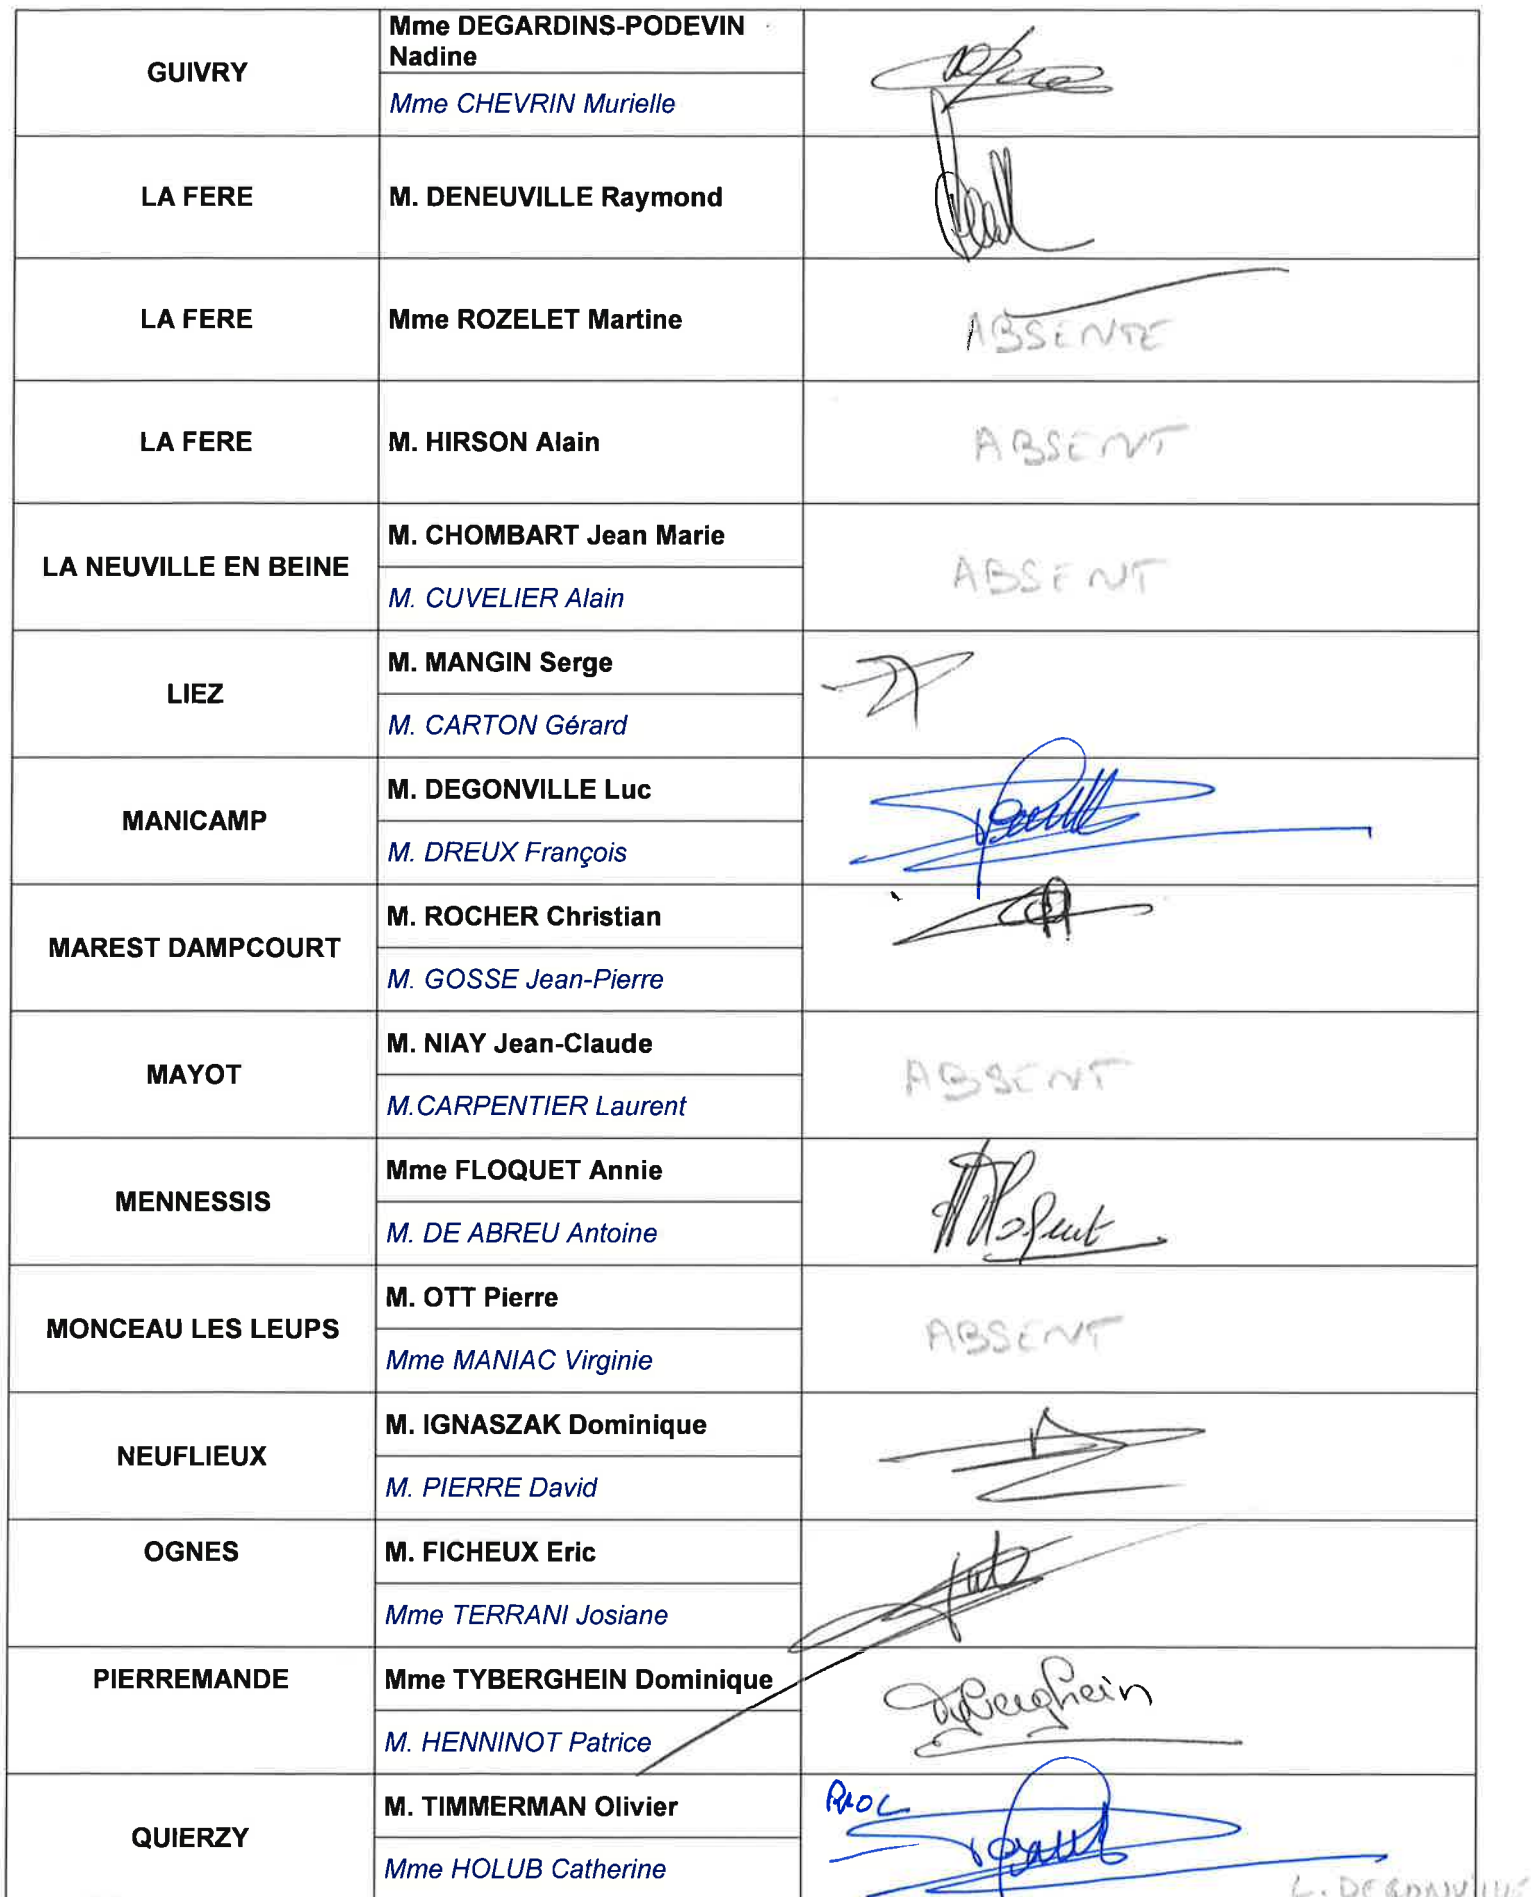 GUIVRY
Mme DEGARDINS-PODEVIN
Nadine
Mme CHEVRIN Murielle
LA FERE
M. DENEUVILLE Raymond
LA FERE
Mme ROZELET Martine
ABSENTE
LA FERE
M. HIRSON Alain
ABSENT
LA NEUVILLE EN BEINE
M. CHOMBART Jean Marie
M. CUVELIER Alain
ABSENT
LIEZ
M. MANGIN Serge
M. CARTON Gérard
MANICAMP
M. DEGONVILLE Luc
M. DREUX François
MAREST DAMPCOURT
M. ROCHER Christian
M. GOSSE Jean-Pierre
MAYOT
M. NIAY Jean-Claude
M.CARPENTIER Laurent
ABSENT
MENNESSIS
Mme FLOQUET Annie
M. DE ABREU Antoine
MONCEAU LES LEUPS
M. OTT Pierre
Mme MANIAC Virginie
ABSENT
NEUFLIEUX
M. IGNASZAK Dominique
M. PIERRE David
OGNES
M. FICHEUX Eric
Mme TERRANI Josiane
PIERREMANDE
Mme TYBERGHEIN Dominique
M. HENNINOT Patrice
Tyberghein
QUIERZY
M. TIMMERMAN Olivier
Mme HOLUB Catherine
PROC
L. DEGONVILLE